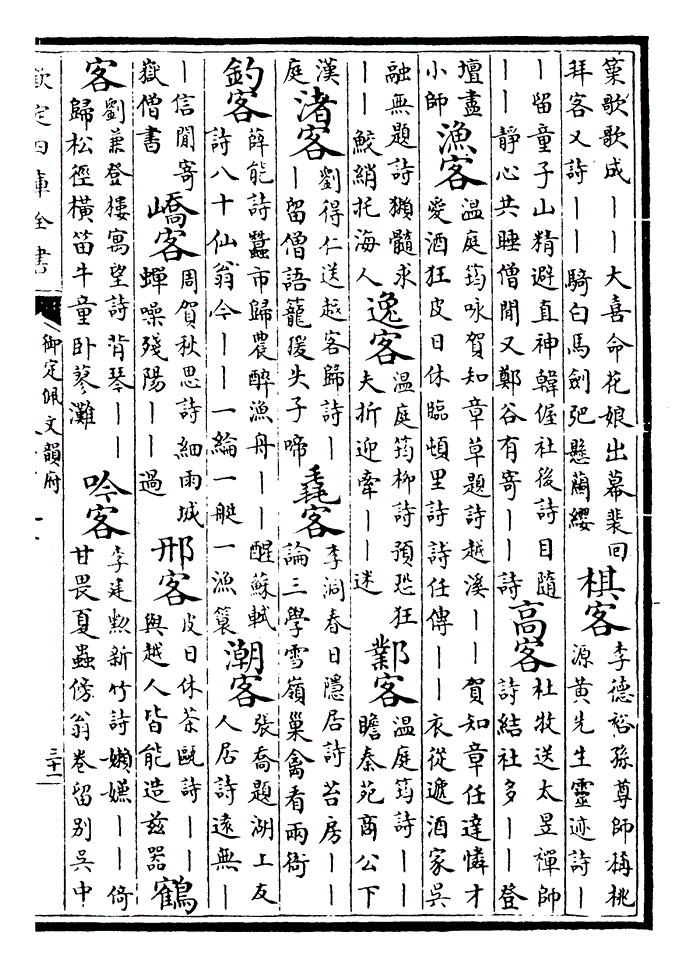 箓歌歌成——大喜命花娘出幕裴回
拜客又詩——騎白馬劍弝懸蘭纓
棋客
李德裕孫尊師構桃
源黄先生靈迹詩—
—留童子山精避直神韓偓社後詩目隨
——靜心共睡僧閒又鄭谷有寄——詩
高客
杜牧送太昱禪師
詩結社多——登
壇盡
小師
漁客
温庭筠咏賀知章草題詩越溪——賀知章任達憐才
愛酒狂皮日休臨頓里詩詩任傳——衣從遞酒家吳
融無題詩獺髓求
——鮫綃托海人
逸客
温庭筠柳詩預恐狂
夫折迎牽——迷
鄴客
温庭筠詩——
瞻秦苑商公下
漢
庭
渚客
劉得仁送越客歸詩—
—留僧語籠援失子啼
毳客
李洞春日隱居詩苔房——
論三學雪嶺巢禽看兩衙
釣客
薛能詩蠶市歸農醉漁舟——醒蘇軾
詩八十仙翁今——一綸一艇一漁簑
潮客
張喬題湖上友
人居詩遠無—
—信閒寄
嶽僧書
嶠客
周賀秋思詩細雨城
蟬噪殘陽——過
邢客
皮日休茶甌詩——
與越人皆能造兹器
鶴
客
劉兼登樓寓望詩背琴——
歸松徑横笛牛童卧蓼灘
吟客
李建勲新竹詩嬾嫌——倚
甘畏夏蟲傍翁卷留别吳中
欽定四庫全書
御定佩文韻府
三十一